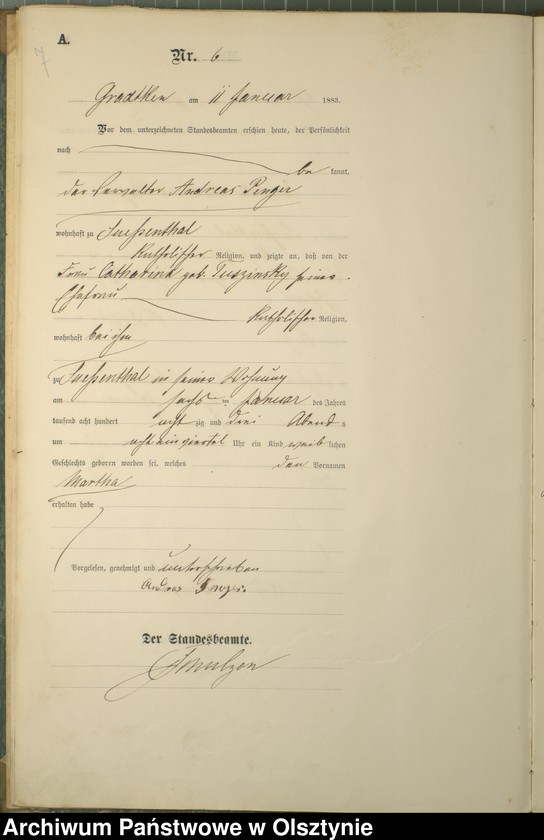 A.
7
Nr. 6
Gradtken am 11 Januar 1883.
Vor dem unterzeichneten Standesbeamten erschien heute, der Persönlichkeit
nach
be kannt,
der Verwalter Andreas Penger
wohnhaft zu Sueßenthal
katholischer Religion, und zeigte an, daß von der
Frau Catharina geb. Tuszinsky seiner
Ehefrau
katholischer Religion,
wohnhaft bei ihm
zu Sueßenthal in seiner Wohnung
am sechs ten Januar des Jahres
tausend acht hundert acht zig und drei Abend s
um acht ein viertel Uhr ein Kind weib lichen
Geschlechts geboren worden sei, welches den Vornamen
Martha
erhalten habe
Vorgelesen, genehmigt und unterschrieben
Andreas Penger.
Der Standesbeamte.
Archiwum Państwowe w Olsztynie